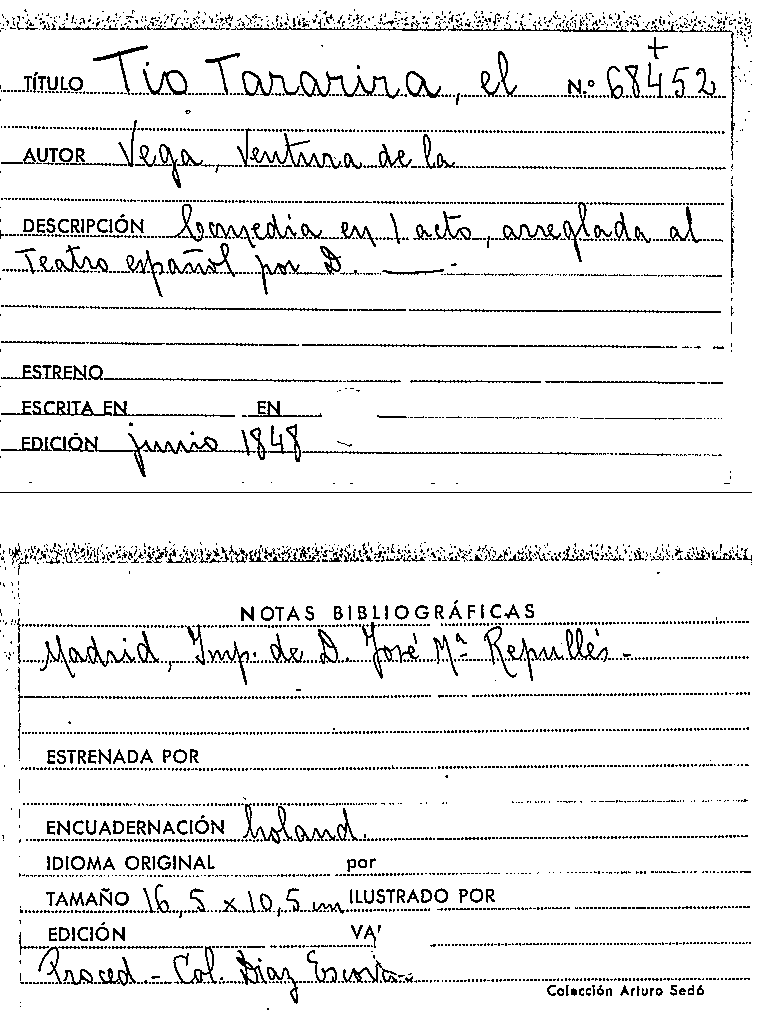 +
TÍTULO Tio Tararira, el N.º 68452
AUTOR Vega, Ventura de la
DESCRIPCIÓN Comedia en 1 acto, arreglada al
Teatro español por D. ———.
ESTRENO
ESCRITA EN EN
EDICIÓN junio 1848 -
NOTAS BIBLIOGRÁFICAS
Madrid, Imp. de D. José Mª Repullés -
ESTRENADA POR
ENCUADERNACIÓN holand.
IDIOMA ORIGINAL por
TAMAÑO 16,5 x 10,5 cm ILUSTRADO POR
EDICIÓN VA
Proced - Col. Diaz
Colección Arturo Sedó